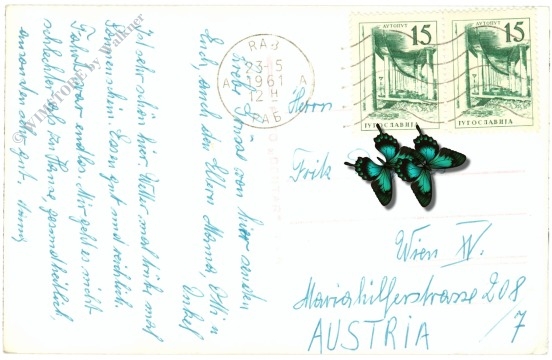 Ist sehr schön hier. Wetter
Essen gut und reichlich.
Fahrt war endlos. Mir geht es nicht
schlechter als zu Hause, gesundheitlich,
ansonsten sehr gut.
von hier senden
Euch, auch den Eltern Mama, Otti u
Onkel
© WINSTORE by Walkner
RAB
23-5
1961
12 H
A A
РАБ
АУТОПУТ
15
ЈУГОСЛАВИЈА
АУТОПУТ
15
ЈУГОСЛАВИЈА
Herrn
Frik
Wien XV.
Mariahilferstrasse 208
/7
AUSTRIA